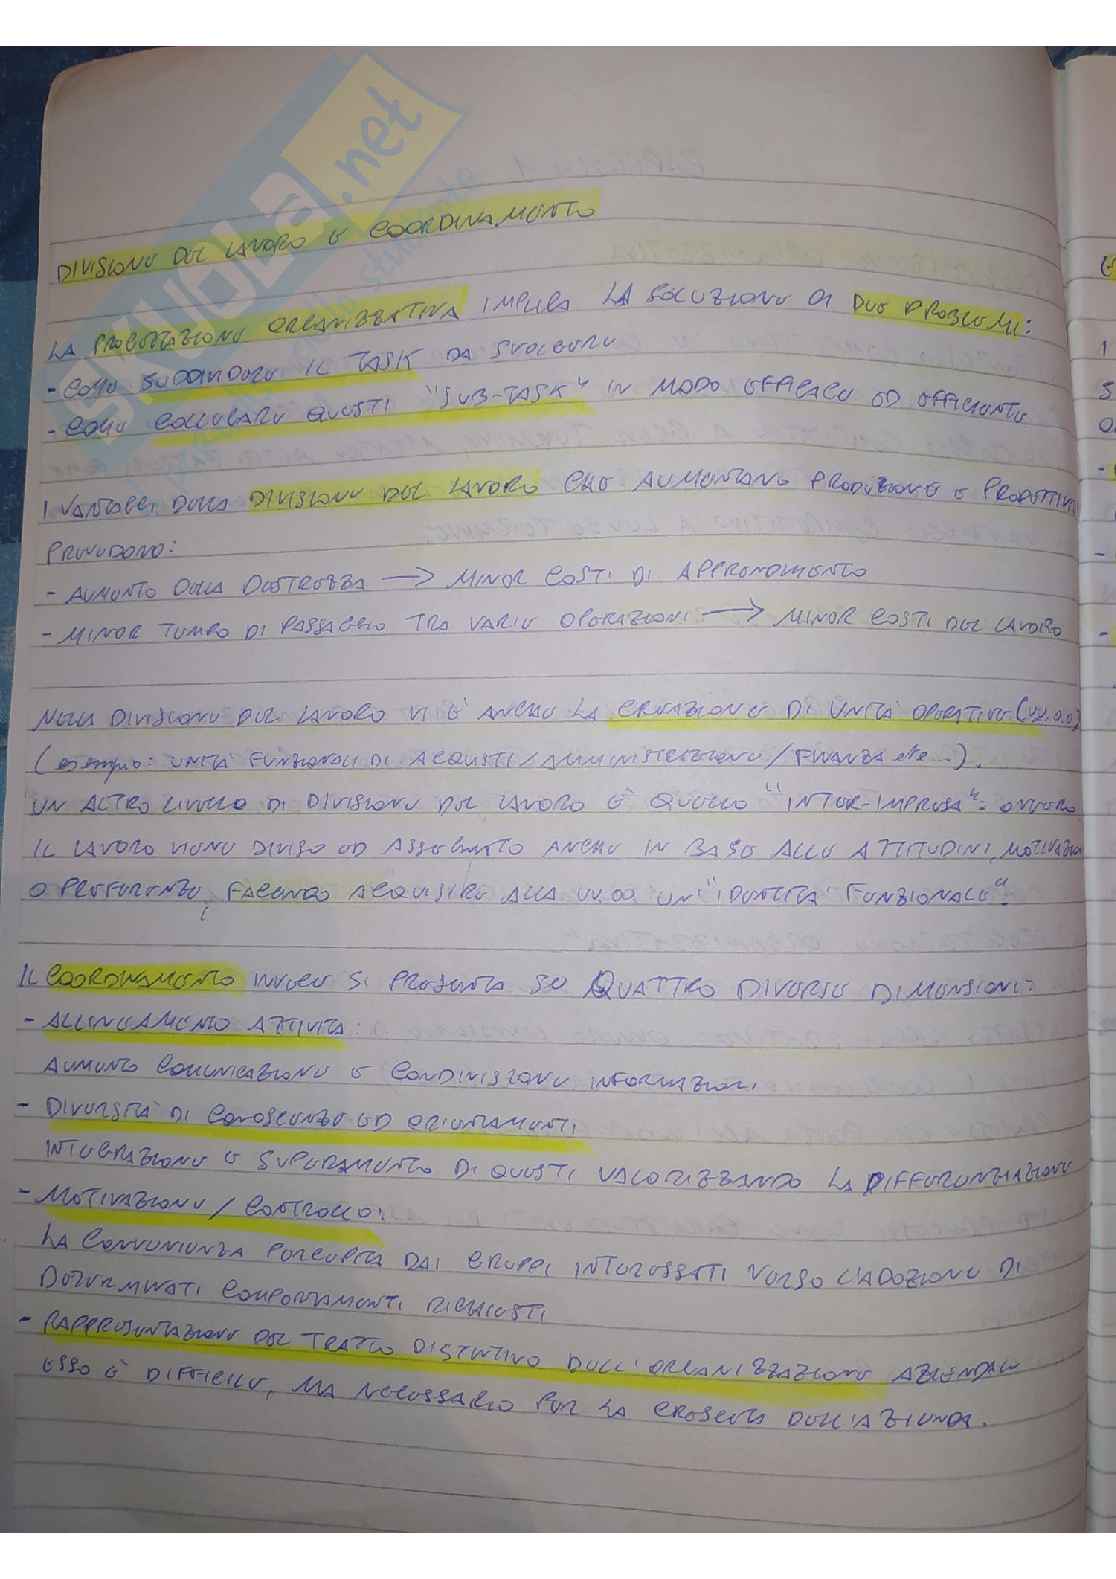 SKUOLA.net
DIVISIONE DEL LAVORO E COORDINAMENTO
LA PROGETTAZIONE ORGANIZZATIVA IMPLICA LA SOLUZIONE DI DUE PROBLEMI:
- COME SUDDIVIDERE IL TASK DA SVOLGERE
- COME COLLEGARE QUESTI "SUB-TASK" IN MODO EFFICACE ED EFFICIENTE
I VANTAGGI DELLA DIVISIONE DEL LAVORO CHE AUMENTANO PRODUZIONE E PRODUTTIVITÀ
PREVEDONO:
- AUMENTO DELLA DESTREZZA → MINOR COSTI DI APPRENDIMENTO
- MINOR TEMPO DI PASSAGGIO TRA VARIE OPERAZIONI → MINOR COSTI DEL LAVORO
NELLA DIVISIONE DEL LAVORO VI È ANCHE LA CREAZIONE DI UNITÀ OPERATIVE (UU.OO)
(esempio: UNITÀ FUNZIONALI DI ACQUISTI/AMMINISTRAZIONE/FINANZA etc...).
UN ALTRO LIVELLO DI DIVISIONE DEL LAVORO È QUELLO "INTER-IMPRESA": OVVERO
IL LAVORO VIENE DIVISO ED ASSEGNATO ANCHE IN BASE ALLE ATTITUDINI, MOTIVAZIONI
O PREFERENZE, FACENDO ACQUISIRE ALLA UU.OO UN'"IDENTITÀ FUNZIONALE".
IL COORDINAMENTO INVECE SI PRESENTA SU QUATTRO DIVERSE DIMENSIONI:
- ALLINEAMENTO ATTIVITÀ:
AUMENTO COMUNICAZIONE E CONDIVISIONE INFORMAZIONI
- DIVERSITÀ DI CONOSCENZE ED ORIENTAMENTI
INTEGRAZIONE E SUPERAMENTO DI QUESTI VALORIZZANDO LA DIFFERENZIAZIONE
- MOTIVAZIONE/CONTROLLO:
LA CONVENIENZA PERCEPITA DAI GRUPPI INTERESSATI VERSO L'ADOZIONE DI
DETERMINATI COMPORTAMENTI RICHIESTI
- RAPPRESENTAZIONE DEL TRATTO DISTINTIVO DELL'ORGANIZZAZIONE AZIENDALE
ESSO È DIFFICILE, MA NECESSARIO PER LA CRESCITA DELL'AZIENDA.